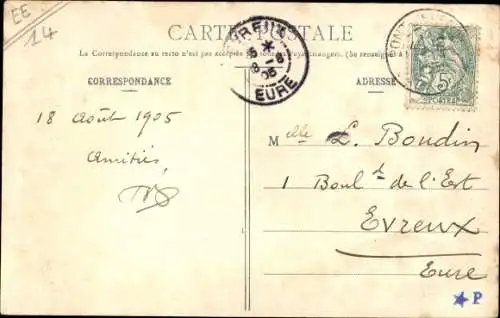 EE
14
CARTE POSTALE
La Correspondance au recto n'est pas acceptée
(Se renseigner à
CORRESPONDANCE
ADRESSE
EVREUX
EURE
5c
POSTES
18 Août 1905
Amitiés
Melle L. Boudin
1 Boul.d de l'Est
Evreux
Eure
P